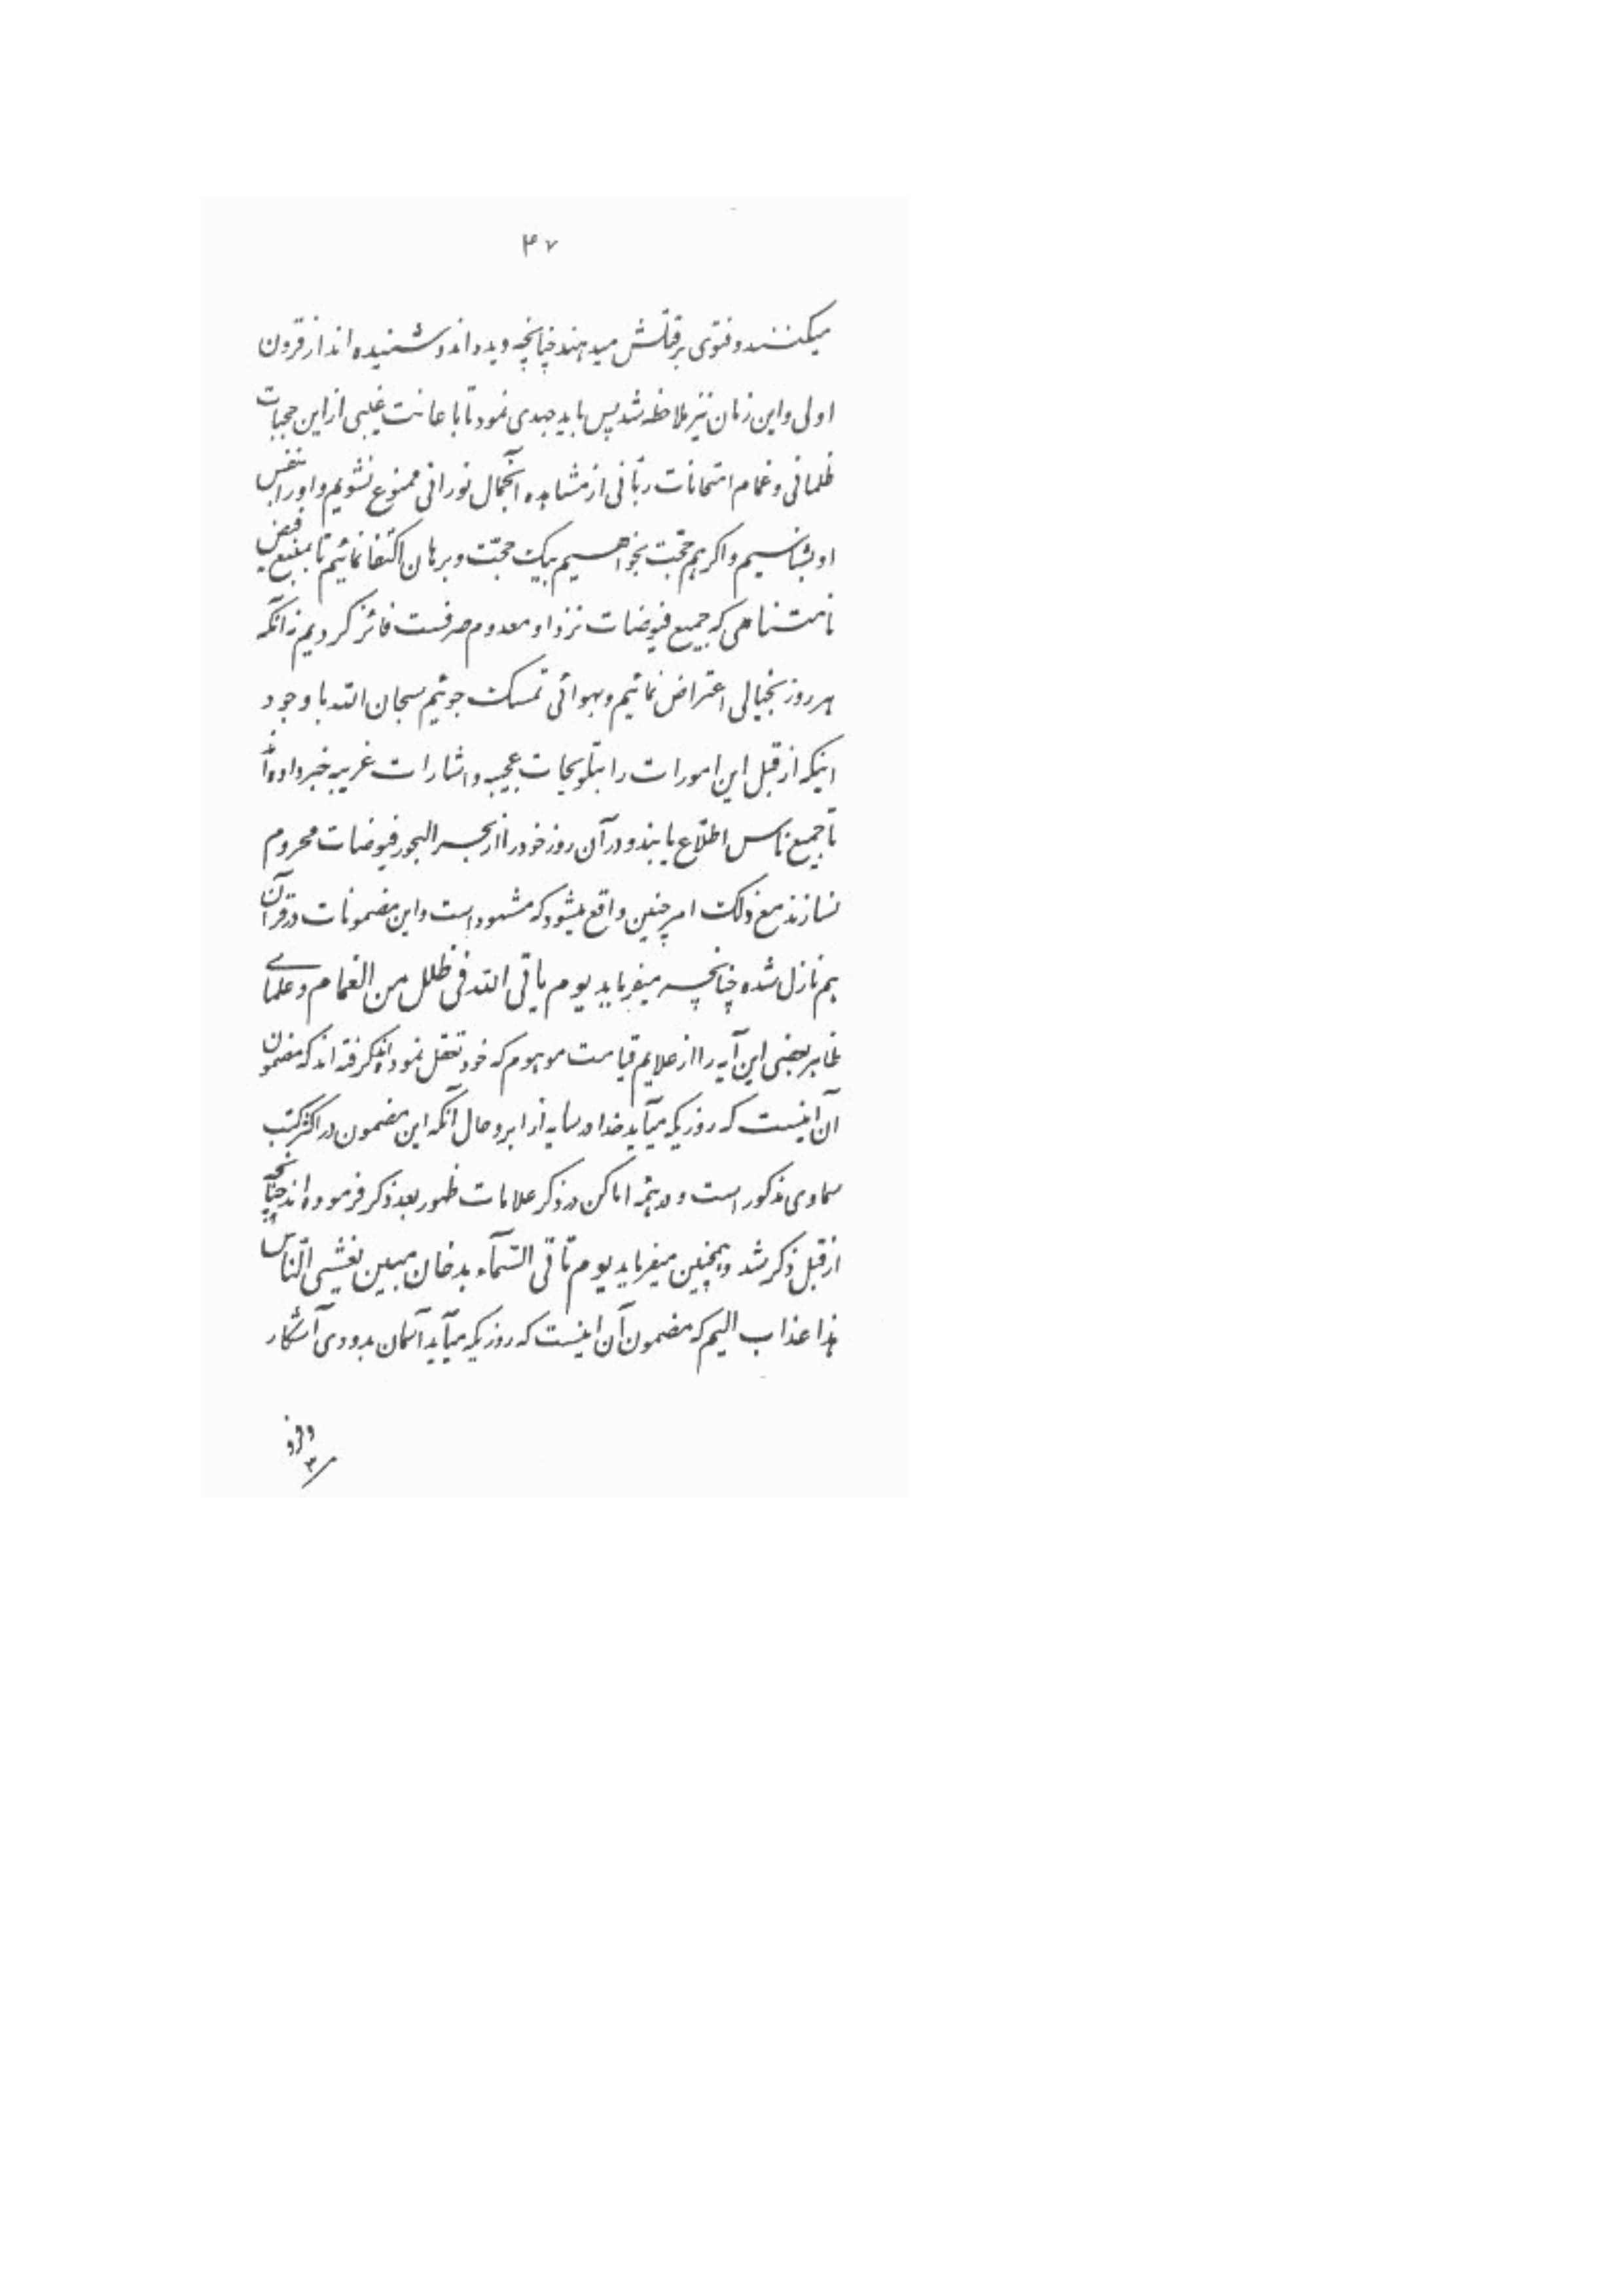 ۴۷
میکنند و فتوی بر قتلش میدهند چنانچه دیده‌اند و شنیده‌اند از قرون
اولی و این زمان نیز ملاحظه شد پس باید جهدی نمود تا باعانت غیبی از این حجبات
ظلمانی و غمام امتحانات ربّانی از مشاهده آنجمال نورانی ممنوع نشویم و او را بنفس
او بشناسیم و اگر هم حجّت بخواهیم بیک حجّت و برهان اکتفا نمائیم تا بمنبع فیض
نامتناهی که جمیع فیوضات نزد او معدوم صرفست فائز گردیم نه آنکه
هر روز بخیالی اعتراض نمائیم و بهوائی تمسک جوئیم سبحان الله با وجود
اینکه از قبل این امورات را بتلویحات عجیبه و اشارات غریبه خبر داده‌اند
تا جمیع ناس اطلّاع یابند و در آن روز خود را از بحر البحور فیوضات محروم
نسازند مع ذلک امر چنین واقع میشود که مشهود است و این مضمونات در قرآن
هم نازل شده چنانچه میفرماید یوم یأتی الله فی ظلل من الغمام و علمای
ظاهر بعضی این آیه را از علایم قیامت موهوم که خود تعقّل نموده‌اند گرفته‌اند که مضمون
آن اینست که روزیکه میآید خدا در سایه از ابر و حال آنکه این مضمون در اکثر کتب
سماوی مذکور است و در همه اماکن در ذکر علامات ظهور بعد ذکر فرموده‌اند چنانچه
از قبل ذکر شد و همچنین میفرماید یوم تأتی السّمآء بدخان مبین یغشی النّاس
هذا عذاب الیم که مضمون آن اینست که روزیکه میآید آسمان بدودی آشکار